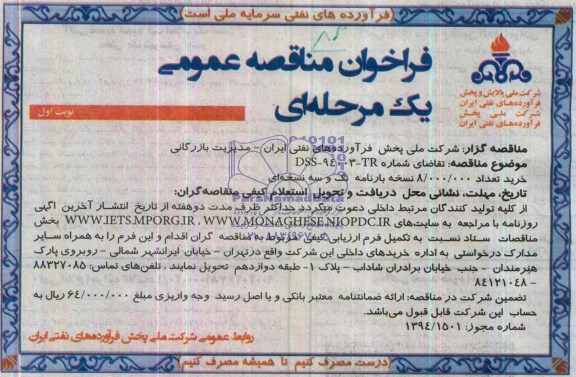 (فرآورده های نفتی سرمایه ملی است)
فراخوان مناقصه عمومی
یک مرحله‌ای
نوبت اول
شرکت ملی پالایش و پخش
فرآورده‌های نفتی ایران
شرکت ملی پخش
فرآورده‌های نفتی ایران
مناقصه گزار: شرکت ملی پخش فرآورده‌های نفتی ایران – مدیریت بازرگانی
موضوع مناقصه: تقاضای شماره DSS-94003-TR
خرید تعداد ۸/۰۰۰/۰۰۰ نسخه بارنامه تک و سه نسخه‌ای
تاریخ، مهلت، نشانی محل دریافت و تحویل استعلام کیفی مناقصه‌گران:
از کلیه تولید کنندگان مرتبط داخلی دعوت میگردد حداکثر ظرف مدت دوهفته از تاریخ انتشار آخرین آگهی
روزنامه با مراجعه به سایت‌های WWW.IETS.MPORG.IR ، WWW.MONAGHESE.NIOPDC.IR بخش
مناقصات ستاد نسبت به تکمیل فرم ارزیابی کیفی مربوط به مناقصه گران اقدام و این فرم را به همراه سایر
مدارک درخواستی به اداره خریدهای داخلی این شرکت واقع درتهران – خیابان ایرانشهر شمالی – روبروی پارک
هنرمندان – جنب خیابان برادران شاداب – پلاک ۱- طبقه دوازدهم تحویل نمایند . تلفن‌های تماس: ۸۸۳۲۷۰۸۵
– ۸۴۱۲۱۰۴۸
تضمین شرکت در مناقصه: ارائه ضمانتنامه معتبر بانکی و یا اصل رسید وجه واریزی مبلغ ۶۴/۰۰۰/۰۰۰ ریال به
حساب این شرکت قابل قبول می‌باشد.
شماره مجوز: ۱۳۹۴/۱۵۰۱
روابط عمومی شرکت ملی پخش فرآورده‌های نفتی ایران
(درست مصرف کنیم تا همیشه مصرف کنیم)